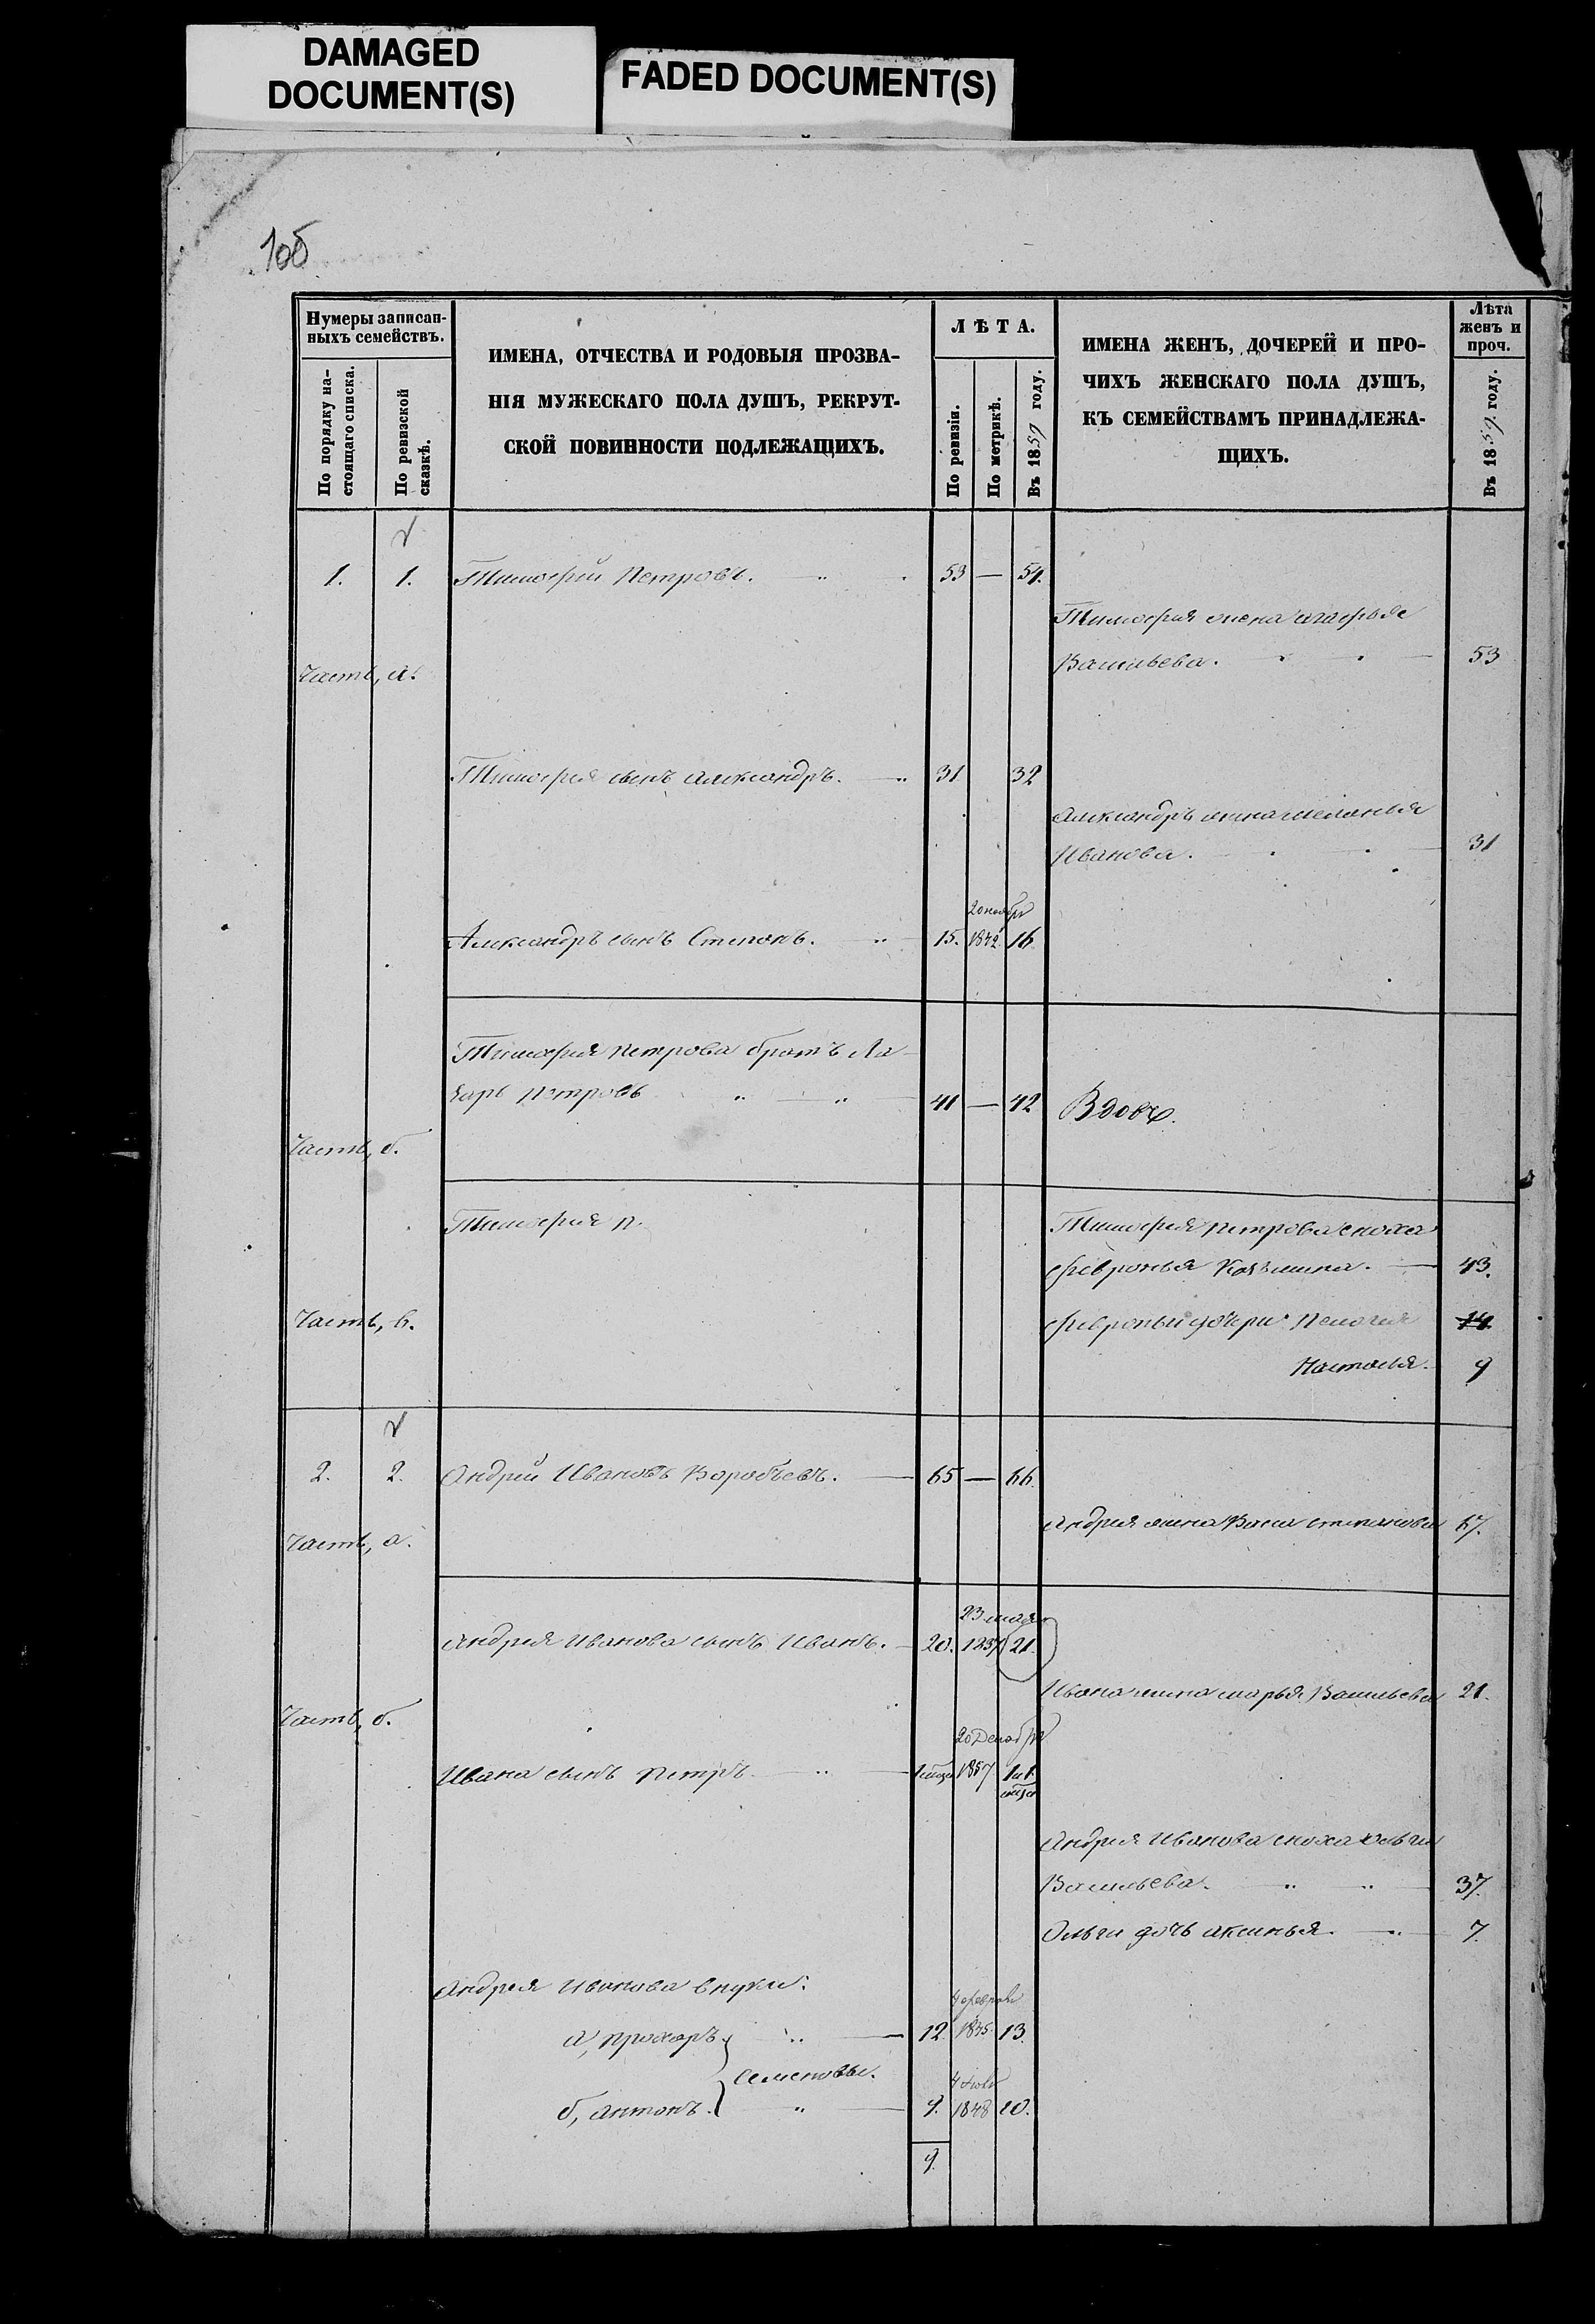 DAMAGED
DOCUMENT(S)
FADED DOCUMENT(S)
106
Нумеры записан-
ныхъ семействъ.
По порядку на-
стоящаго списка.
По ревизской
сказкѣ.
ИМЕНА, ОТЧЕСТВА И РОДОВЫЯ ПРОЗВА-
НІЯ МУЖЕСКАГО ПОЛА ДУШЪ, РЕКРУТ-
СКОЙ ПОВИННОСТИ ПОДЛЕЖАЩИХЪ.
ЛѢТА.
По ревизіи.
По метрикѣ.
Въ 1859 году.
ИМЕНА ЖЕНЪ, ДОЧЕРЕЙ И ПРО-
ЧИХЪ ЖЕНСКАГО ПОЛА ДУШЪ,
КЪ СЕМЕЙСТВАМЪ ПРИНАДЛЕЖА-
ЩИХЪ.
Лѣта
женъ и
проч.
Въ 1859. году.
1. 1. Тимофей Петровъ. 53 — 54.
Тимофея жена Агафья
Васильева. 53
Часть, а.
Тимофея сынъ Александръ. 31 32
Александръ жена Меланья
Иванова. 31
20 ноября
Александръ сынъ Степанъ. 15. 1842 16
Тимофея Петрова братъ Ла-
зарь Петровъ 41 — 42 Вдовъ.
Часть, б.
Тимофея П. Тимофея Петрова сноха
Февронья Козьмина. 43.
Часть, в. Февроньи дочери Пелагия 14.
Настасья. 9
2. 2. Андрей Ивановъ Воробьевъ. 65 — 66.
Андрея жена Васа Степанова 67.
Часть, а.
23 мая
Андрея Иванова сынъ Иванъ. 20. 1837 21.
Ивана жена Марья Васильева 21.
Часть, б.
20 Декабря
Ивана сынъ Петръ 1857
Андрея Иванова сноха Ольга
Васильева. 37.
Ольги дочь Аксинья. 7.
Андрея Иванова внуки:
4 февраля
а, Прохоръ 12. 1845 13.
Семеновы.
б, Антонъ. 9. 1848 10.
9.